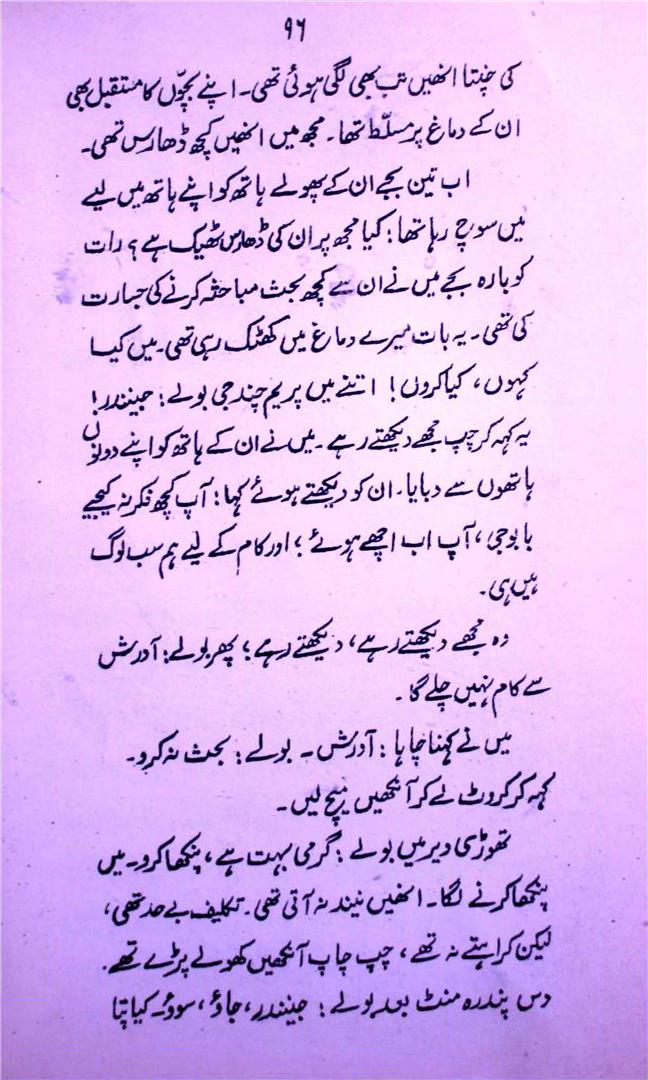 ۹۶
کی چنتا انھیں تب بھی لگی ہوئی تھی۔ اپنے بچّوں کا مستقبل بھی
ان کے دماغ پر مسلّط تھا۔ مجھ میں انھیں کچھ ڈھارس تھی۔
اب تین بجے ان کے پھولے ہاتھ کو اپنے ہاتھ میں لیے
میں سوچ رہا تھا: کیا مجھ پر ان کی ڈھارس ٹھیک ہے؟ رات
کو بارہ بجے میں نے ان سے کچھ بحث مباحثہ کرنے کی جسارت
کی تھی۔ یہ بات میرے دماغ میں کھٹک رہی تھی۔ میں کیا
کہوں، کیا کروں! اتنے میں پریم چند جی بولے: جینندر!
یہ کہہ کر چپ مجھے دیکھتے رہے۔ میں نے ان کے ہاتھ کو اپنے دونوں
ہاتھوں سے دبایا۔ ان کو دیکھتے ہوئے کہا: آپ کچھ فکر نہ کیجیے
بابو جی، آپ اب اچھے ہوئے؛ اور کام کے لیے ہم سب لوگ
ہیں ہی۔
وہ مجھے دیکھتے رہے، دیکھتے رہے؛ پھر بولے: آدرش
سے کام نہیں چلے گا۔
میں نے کہنا چاہا: آدرش۔ بولے: بحث نہ کرو۔
کہہ کر کروٹ لے کر آنکھیں میچ لیں۔
تھوڑی دیر میں بولے: گرمی بہت ہے، پنکھا کرو۔ میں
پنکھا کرنے لگا۔ انھیں نیند نہ آتی تھی۔ تکلیف بے حد تھی،
لیکن کراہتے نہ تھے، چپ چاپ آنکھیں کھولے پڑے تھے۔
دس پندرہ منٹ بعد بولے: جینندر، جاؤ، سوؤ۔ کیا پتا